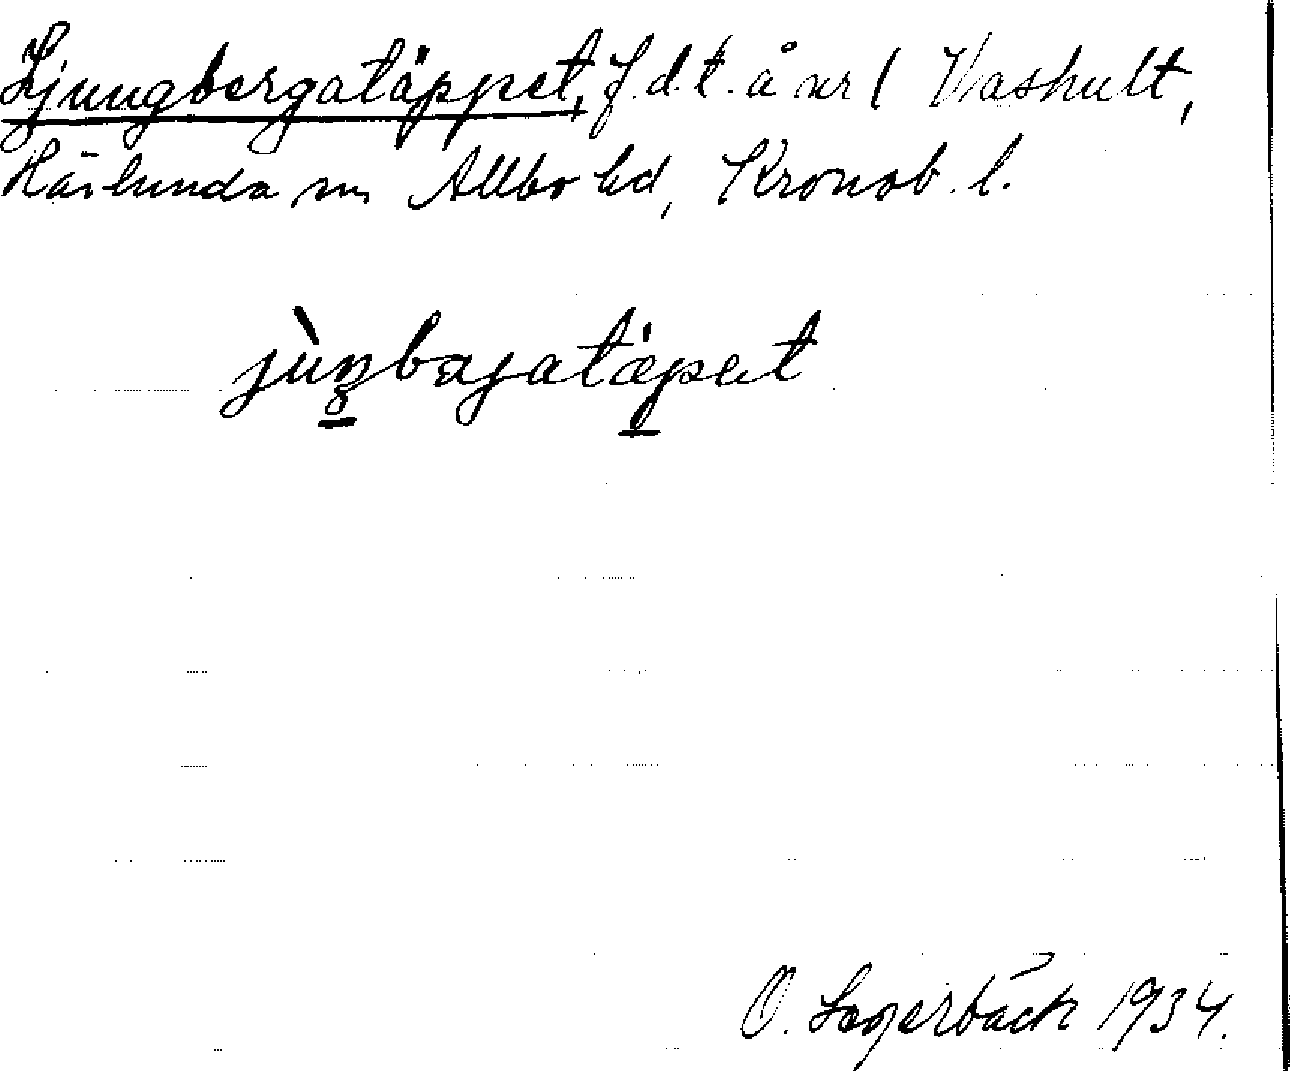 Ljungbergatäppet, f.d.t. å nr 1 Vashult,
Härlunda sn, Allbo hd, Kronob. l.
jùŋbajatä̀pet
O. Lagerbäck 1934.